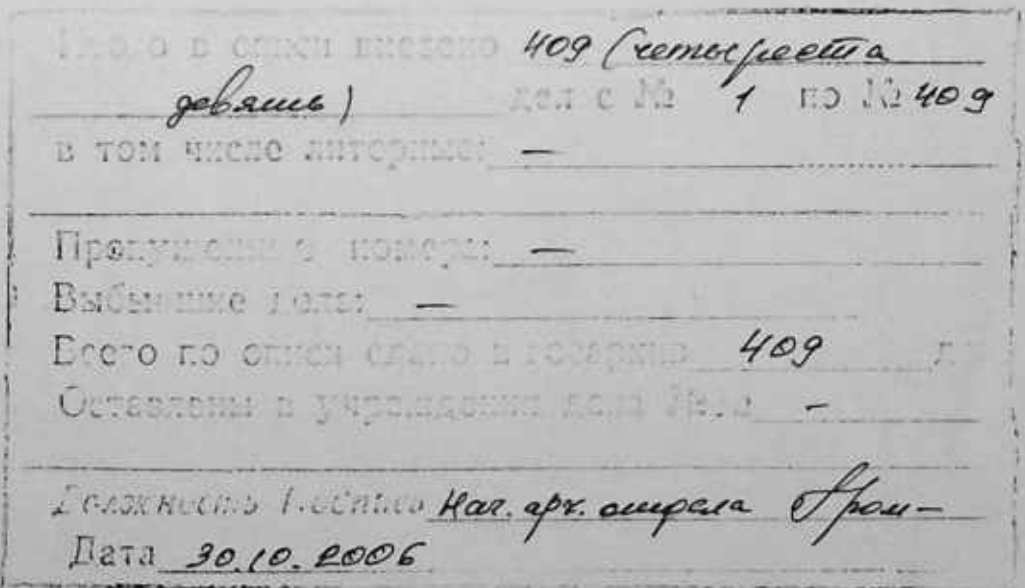 Итого в описи внесено 409 (четыреста
девять) дел с № 1 по № 409
в том числе литерные: —
Пропущенные номера: —
Выбывшие дела: —
Всего по описи сдано в госархив 409 д
Оставлены в учреждении дела №№ -
Должность Подпись Нач. арх. отдела
Дата 30.10.2006